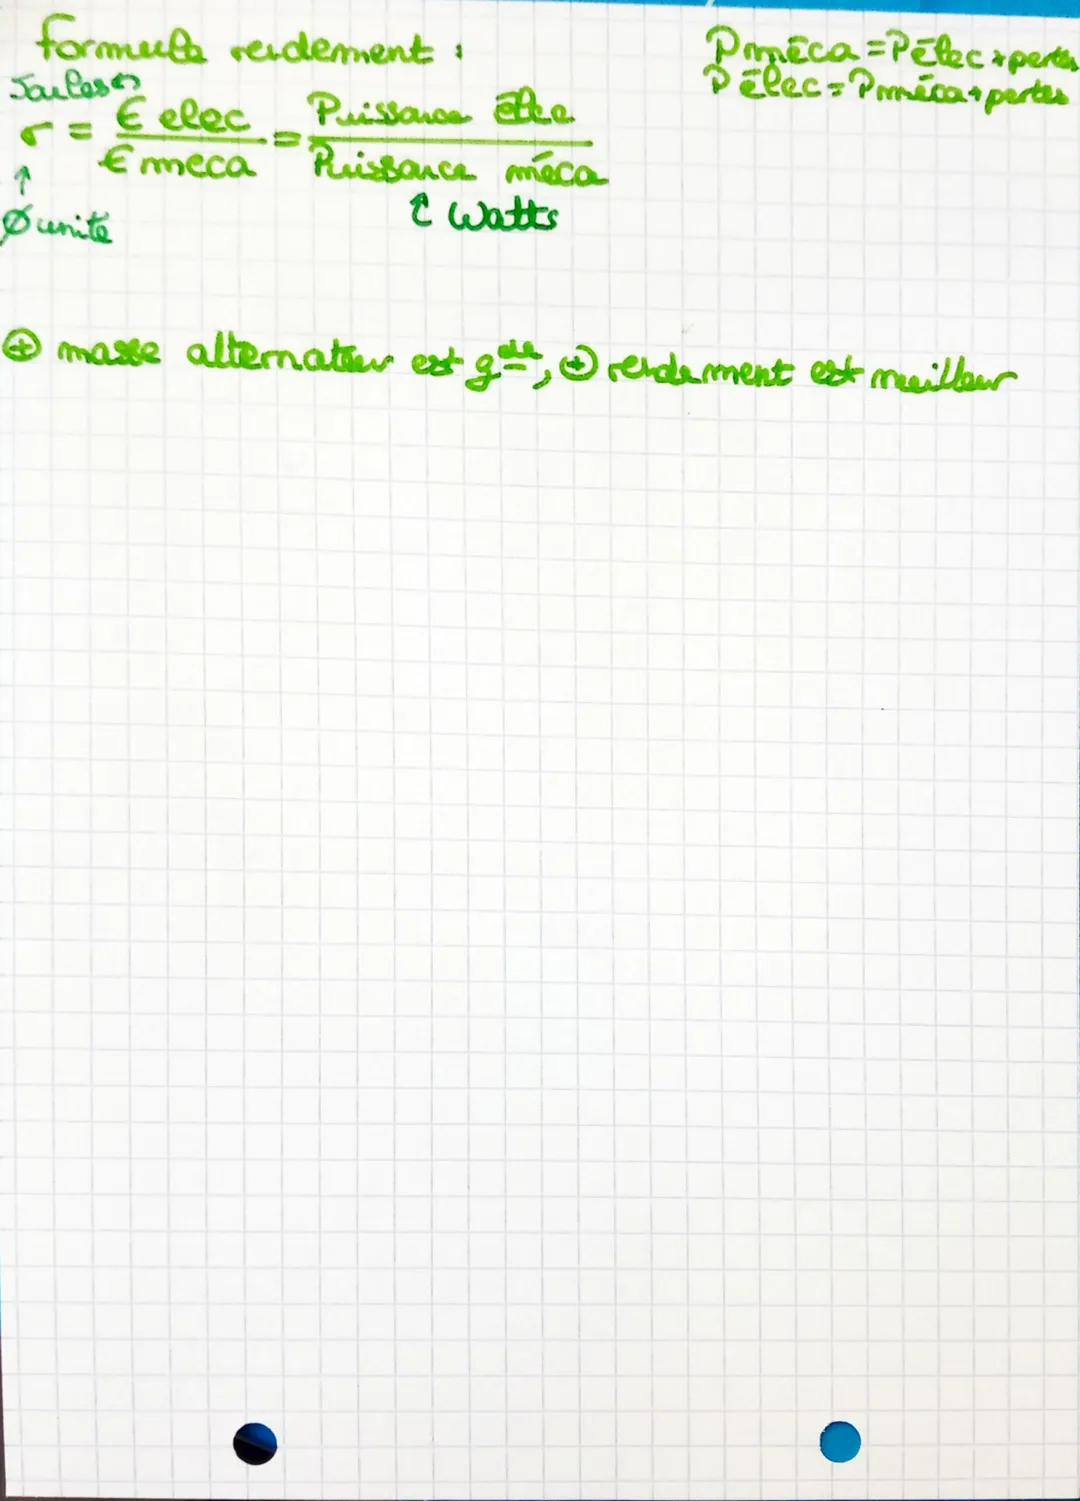 formule rendement :
Pméca = Pélec + pertes
Pélec = Pméca + pertes
Joules
σ = E elec / E meca = Puissance élec / Puissance méca
↑
Ø unité
↑ Watts
⊕ masse alternateur est gde, ⊕ rendement est meilleur